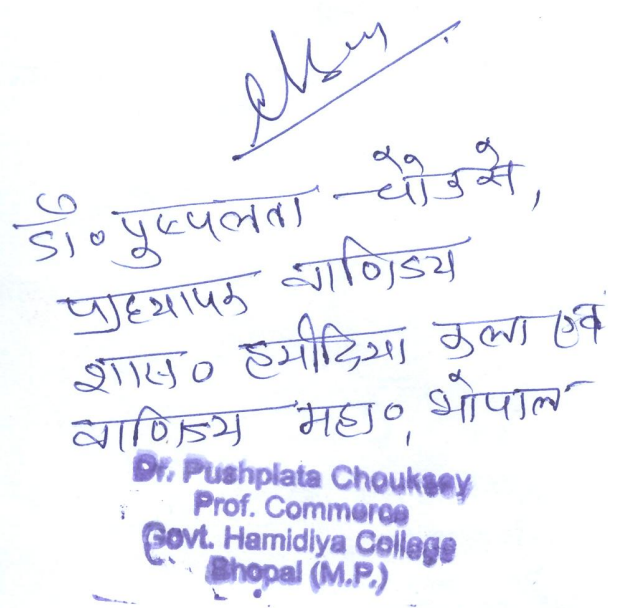 डॉ० पुष्पलता चौकसे,
प्राध्यापक वाणिज्य
शास० हमीदिया कला एवं
वाणिज्य महा०, भोपाल
Dr. Pushplata Chouksey
Prof. Commerce
Govt. Hamidiya College
Bhopal (M.P.)